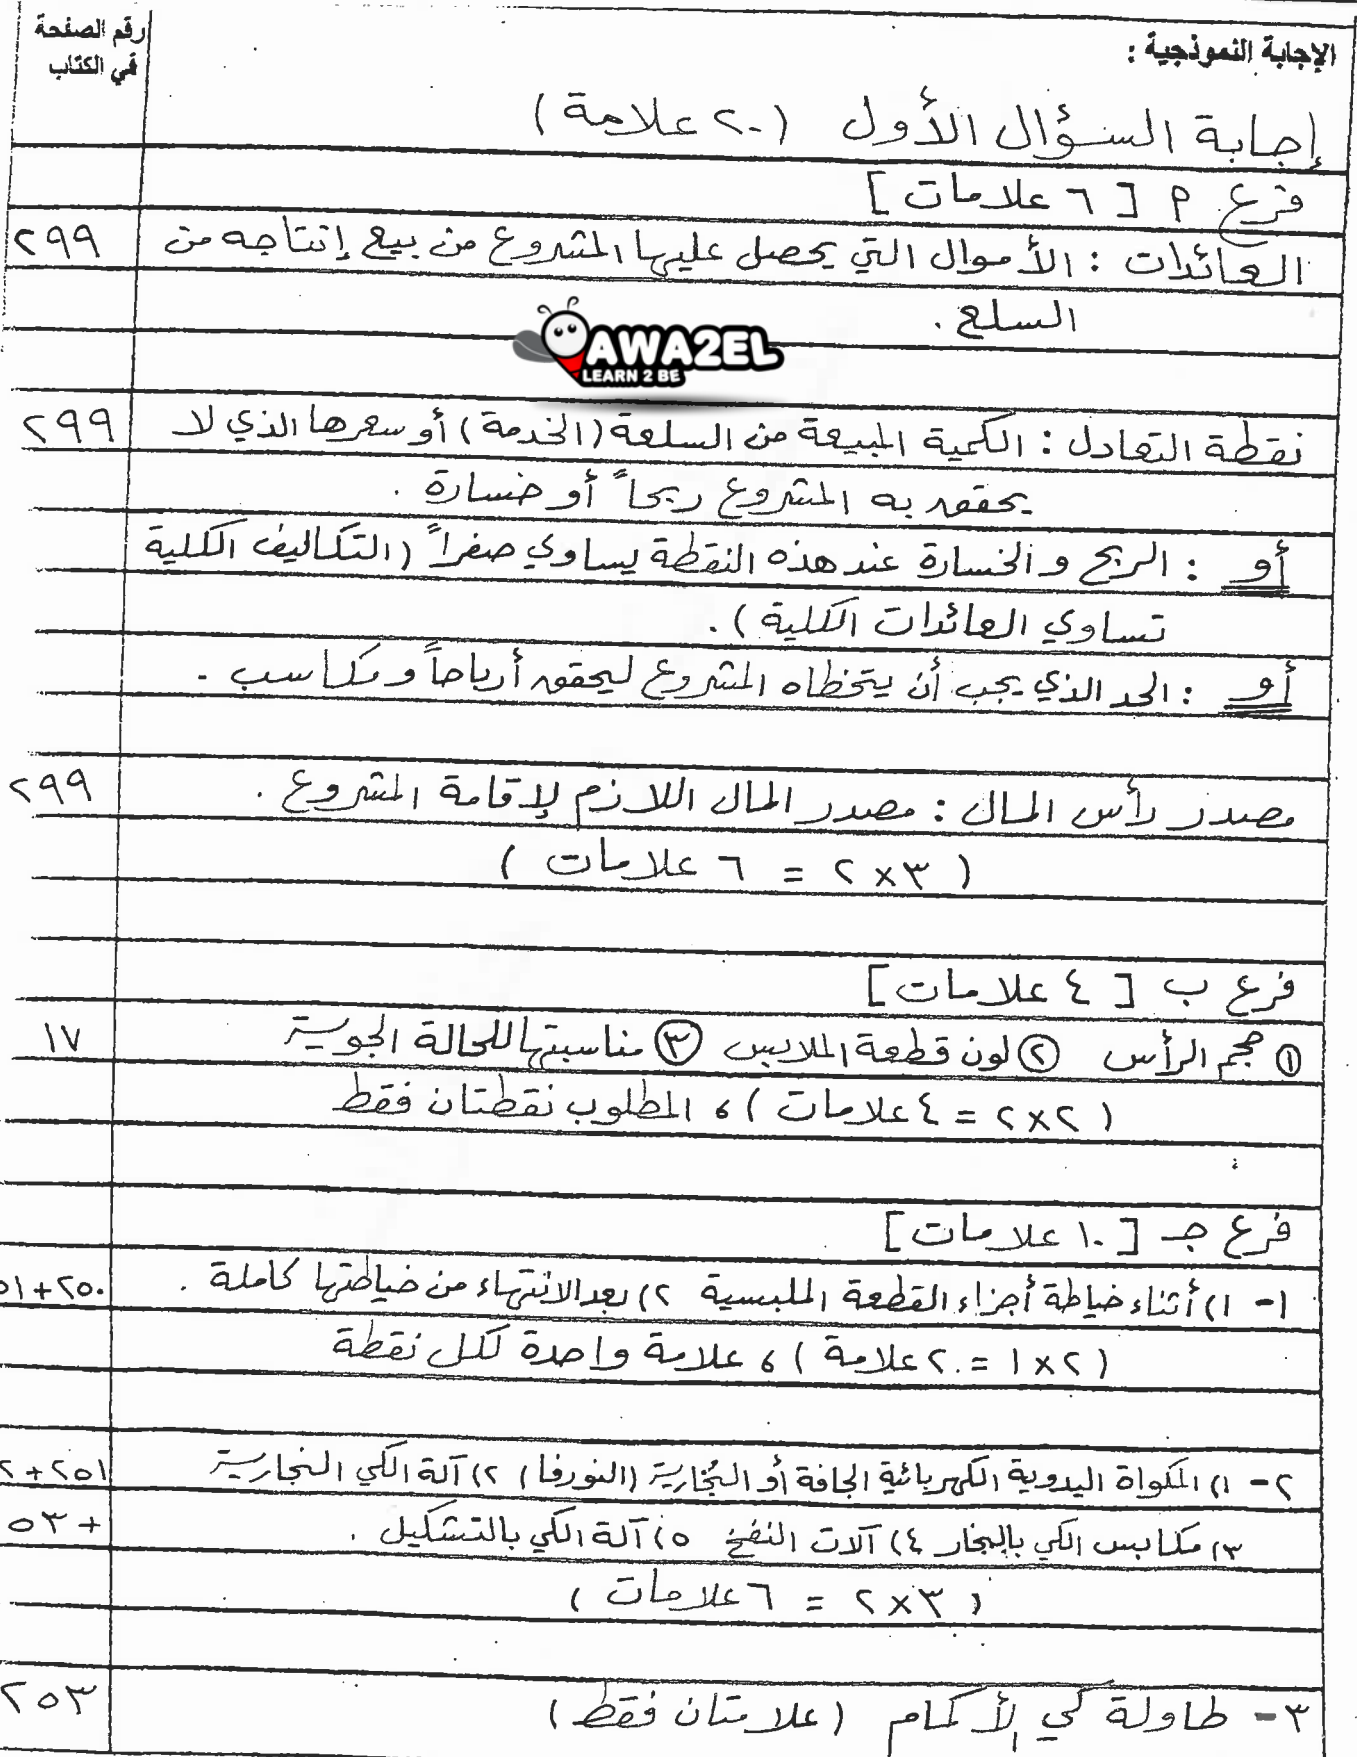 رقم الصفحة
في الكتاب
الإجابة النموذجية :
إجابة السؤال الأول (٢٠ علامة)
فرع م [ ٦ علامات ]
العائدات : الأموال التي يحصل عليها المشروع من بيع إنتاجه من ٢٩٩
السلع .
AWA2EL
LEARN 2 BE
نقطة التعادل : الكمية المبيعة من السلعة (الخدمة) أو سعرها الذي لا ٢٩٩
يحقق به المشروع ربحاً أو خسارة .
أو : الربح والخسارة عند هذه النقطة يساوي صفراً (التكاليف الكلية
تساوي العائدات الكلية ) .
أو : الحد الذي يجب أن يتخطاه المشروع ليحقق أرباحاً ومكاسب .
مصدر رأس المال : مصدر المال اللازم لإقامة المشروع . ٢٩٩
( ٣×٢ = ٦ علامات )
فرع ب [ ٤ علامات ]
① حجم الرأس ② لون قطعة الملابس ③ مناسبتها للحالة الجوية ١٧
( ٢×٢ = ٤ علامات ) ، المطلوب نقطتان فقط
فرع جـ [ ١٠ علامات ]
١- ١) أثناء خياطة أجزاء القطعة الملبسية ٢) بعد الانتهاء من خياطتها كاملة . ٢٥٠+٥١
( ٢×١ = ٢ علامة ) ، علامة واحدة لكل نقطة
٢- ١) المكواة اليدوية الكهربائية الجافة أو البُخارية (النورفا) ٢) آلة الكي البخارية ٢٥١+٢
٣) مكابس الكي بالبخار ٤) آلات النفخ ٥) آلة الكي بالتشكيل . +٥٣
( ٣×٢ = ٦ علامات )
٣- طاولة كي الأكمام (علامتان فقط) ٢٥٣